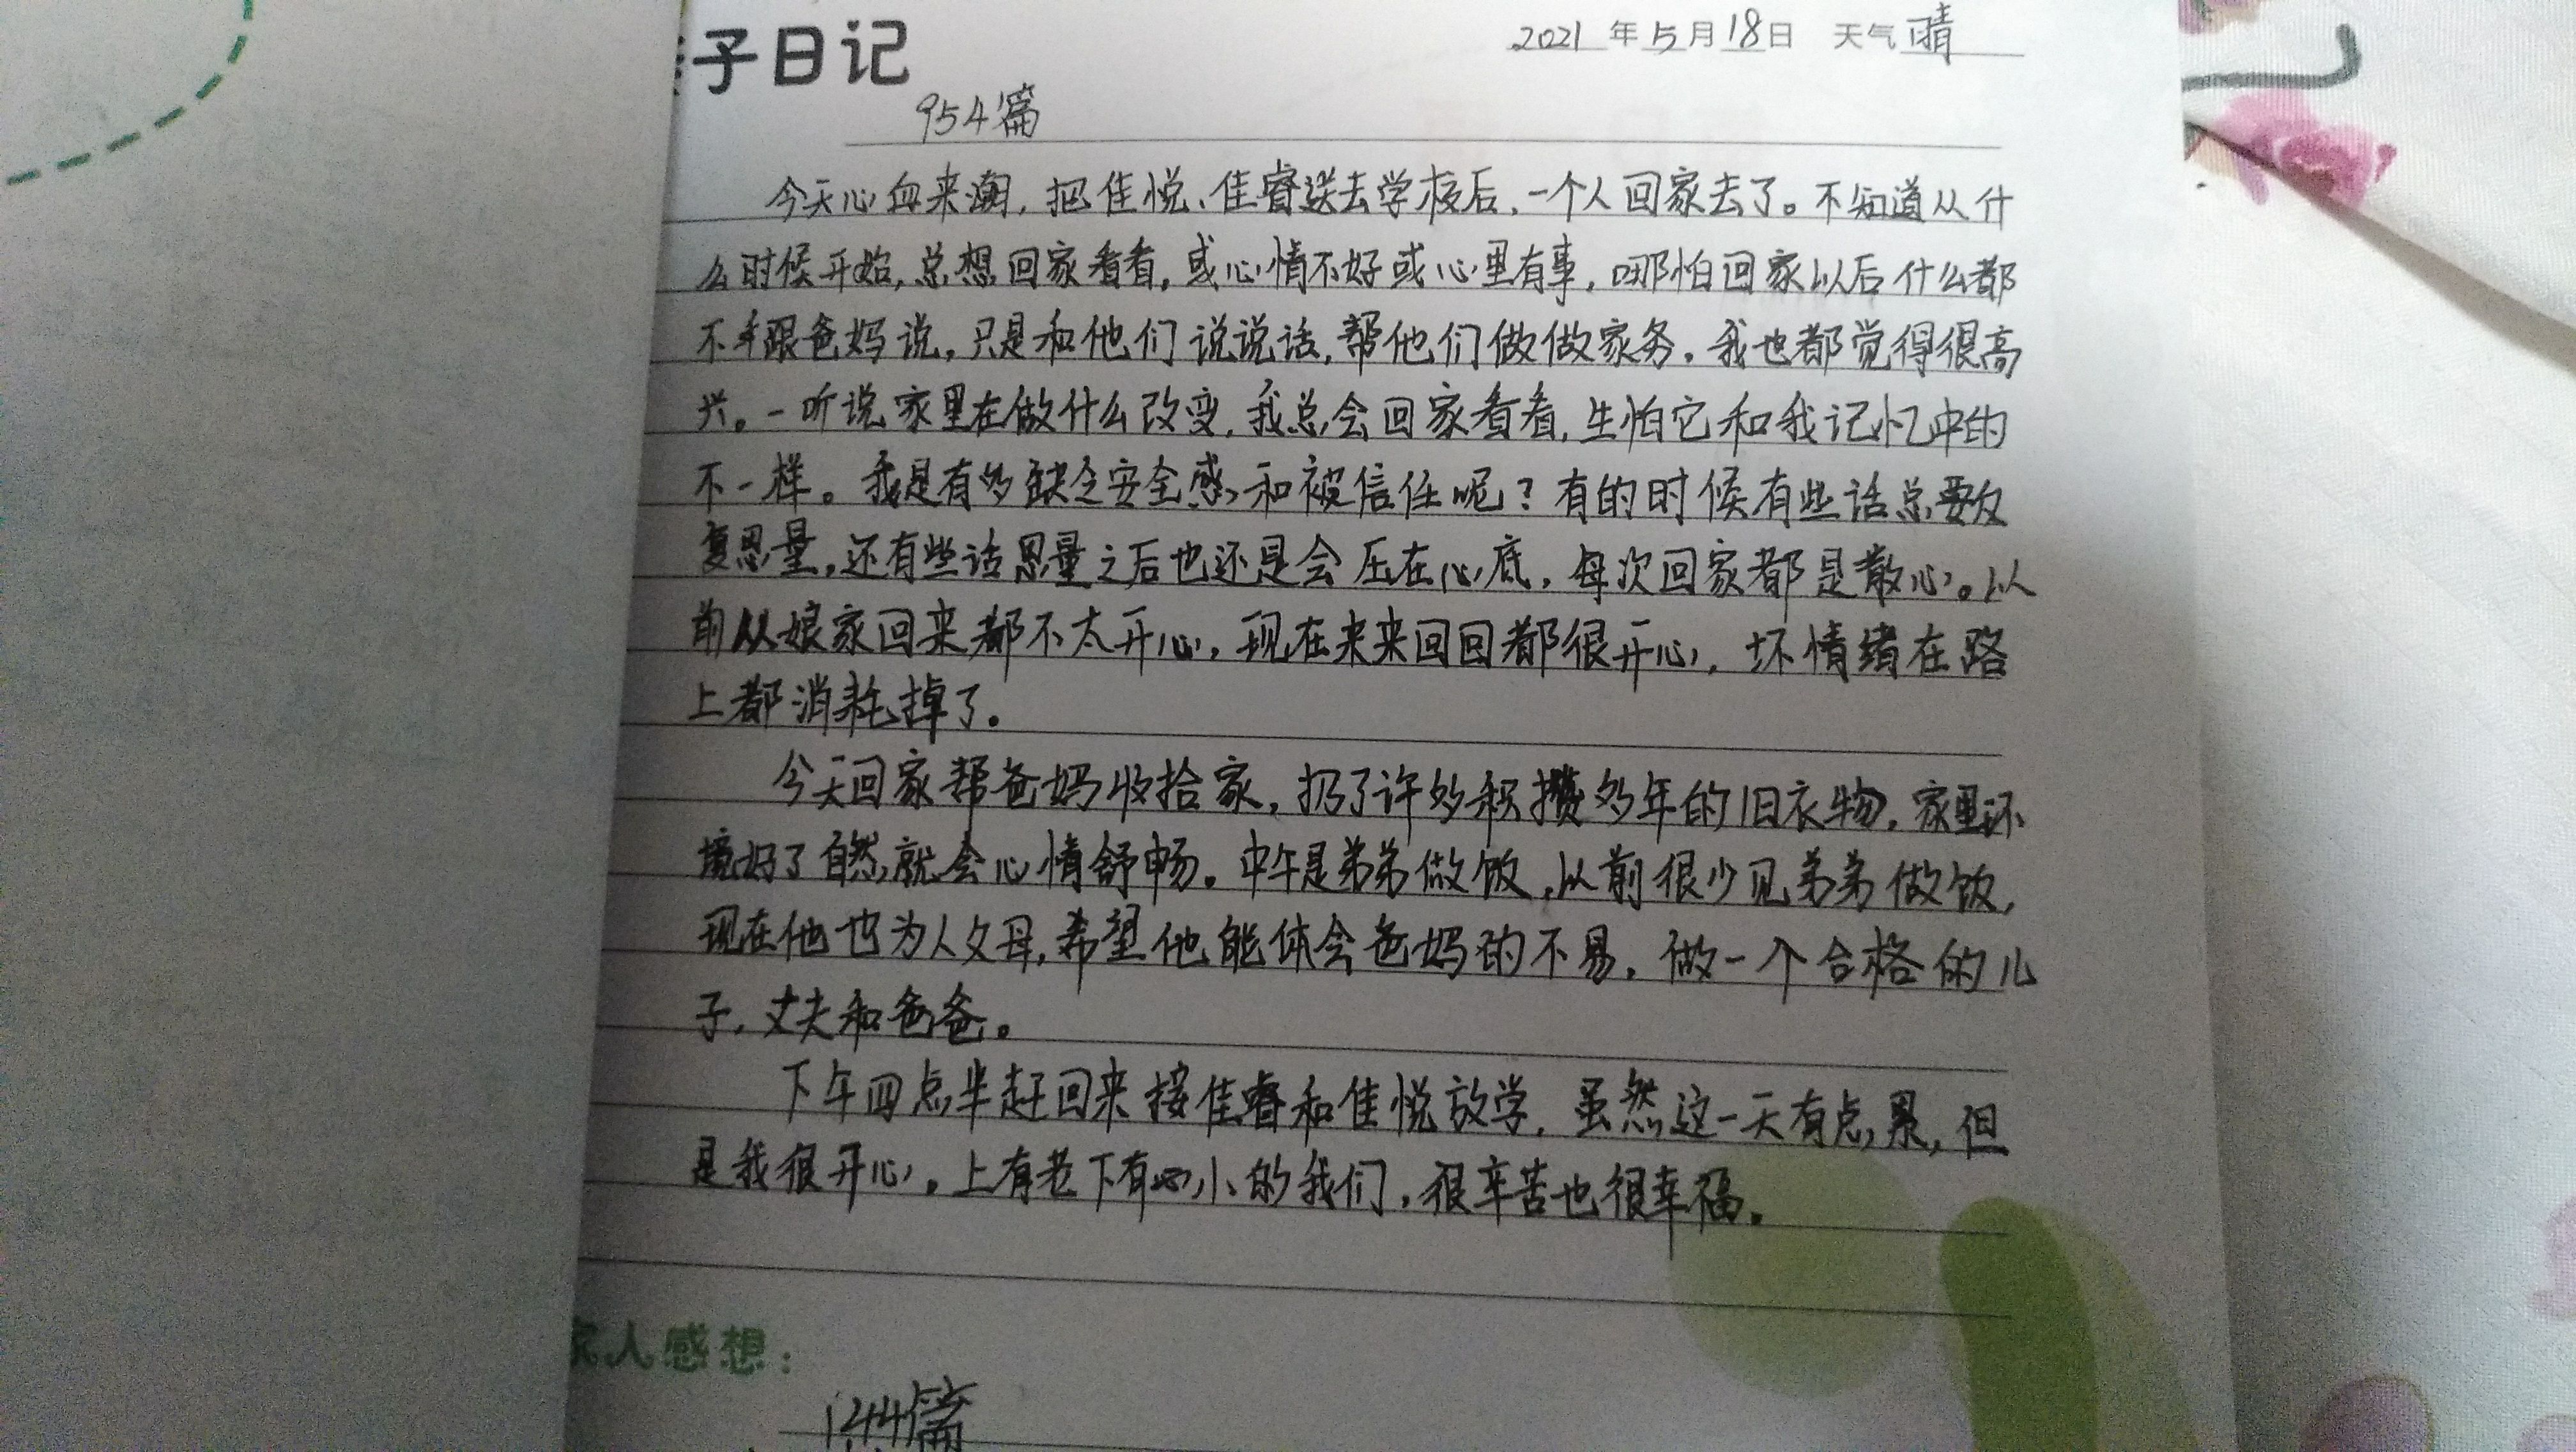 子日记
2021年5月18日 天气 晴
954篇
今天心血来潮,把佳悦、佳睿送去学校后,一个人回家去了。不知道从什
么时候开始,总想回家看看,或心情不好或心里有事,哪怕回家以后什么都
不跟爸妈说,只是和他们说说话,帮他们做做家务,我也都觉得很高
兴。一听说家里在做什么改变,我总会回家看看,生怕它和我记忆中的
不一样。我是有多缺乏安全感和被信任呢?有的时候有些话总要反
复思量,还有些话思量之后也还是会压在心底,每次回家都是散心。以
前从娘家回来都不太开心,现在来来回回都很开心,坏情绪在路
上都消耗掉了。
今天回家帮爸妈收拾家,扔了许多积攒多年的旧衣物,家里环
境好了自然就会心情舒畅。中午是弟弟做饭,以前很少见弟弟做饭,
现在他也为人父母,希望他能体会爸妈的不易,做一个合格的儿
子,丈夫和爸爸。
下午四点半赶回来接佳睿和佳悦放学,虽然这一天有点累,但
是我很开心。上有老下有小的我们,很辛苦也很幸福。
家人感想:
144篇